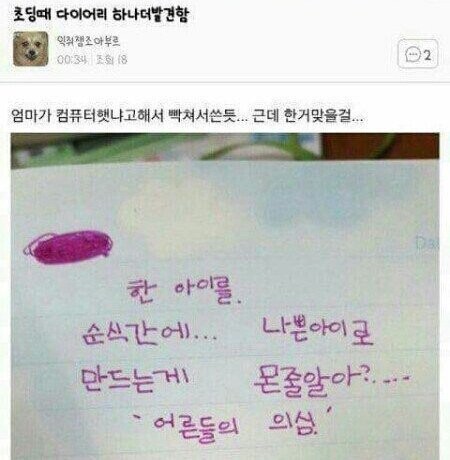 초딩때 다이어리 하나더발견함
익쥐잼조아부르
00:34 | 조회 18
2
엄마가 컴퓨터햇냐고해서 빡쳐서쓴듯... 근데 한거맞을걸...
Dat
한 아이를.
순식간에... 나쁜아이로
만드는게 몬줄알아?....
'어른들의 의심.'